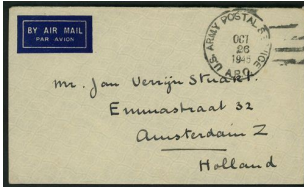 BY AIR MAIL
PAR AVION
U.S. ARMY POSTAL SERVICE
OCT
26
1945
A.P.O.
Mr. Jan Verrijn Stuart.
Emmastraat 32
Amsterdam Z
Holland